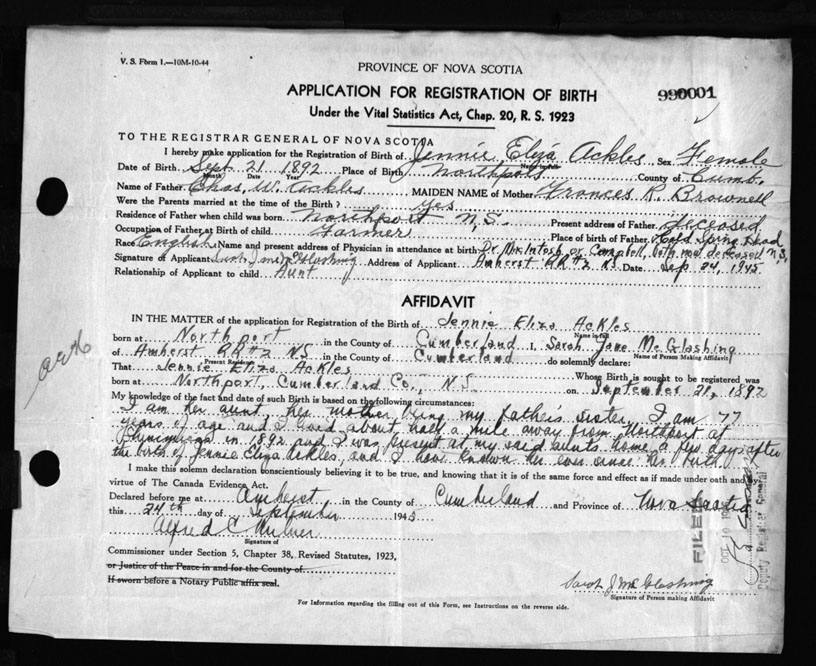 V. S. Form 1.—10M-10-44
PROVINCE OF NOVA SCOTIA
APPLICATION FOR REGISTRATION OF BIRTH
990001
Under the Vital Statistics Act, Chap. 20, R. S. 1923
TO THE REGISTRAR GENERAL OF NOVA SCOTIA
I hereby make application for the Registration of Birth of Jennie Eliza Ackles Sex Female
Name in full
Date of Birth Sept 21 1892 Place of Birth Northport County of Cumb.
Month Date Year
Name of Father Chas. W. Ackles MAIDEN NAME of Mother Frances R. Brownell
Were the Parents married at the time of the Birth? Yes
Residence of Father when child was born Northport N.S. Present address of Father deceased
Occupation of Father at Birth of child Farmer Place of birth of Father Cold Spring Head
Race English Name and present address of Physician in attendance at birth Dr. McIntosh or Campbell, both now deceased N.S.
Signature of Applicant Address of Applicant Amherst RR #2 NS Date Sep 24, 1945
Relationship of Applicant to child Aunt
AFFIDAVIT
IN THE MATTER of the application for Registration of the Birth of Jennie Eliza Ackles
Name in full
born at Northport in the County of Cumberland I, Sarah Jane McGlashing
Name of Person Making Affidavit
of Amherst RR #2 NS in the County of Cumberland do solemnly declare:
Present Residence
That Jennie Eliza Ackles Whose Birth is sought to be registered was
born at Northport, Cumberland Co., N.S. on September 21, 1892
My knowledge of the fact and date of such Birth is based on the following circumstances:
I am her aunt, her mother being my father's sister, I am 77
years of age and I lived about half a mile away from Northport at
in 1892 and I was present at my said aunts home a few days after
the birth of Jennie Eliza Ackles, and I have known her ever since her birth
I make this solemn declaration conscientiously believing it to be true, and knowing that it is of the same force and effect as if made under oath and by
virtue of The Canada Evidence Act.
Declared before me at Amherst in the County of Cumberland and Province of Nova Scotia
this 24th day of September 1945
Alfred E. Milner
Signature of
Commissioner under Section 5, Chapter 38, Revised Statutes, 1923,
or Justice of the Peace in and for the County of
If sworn before a Notary Public affix seal.
Sarah J McGlashing
Signature of Person making Affidavit
For Information regarding the filling out of this Form, see Instructions on the reverse side.
FILED
OCT 10
Deputy Registrar General